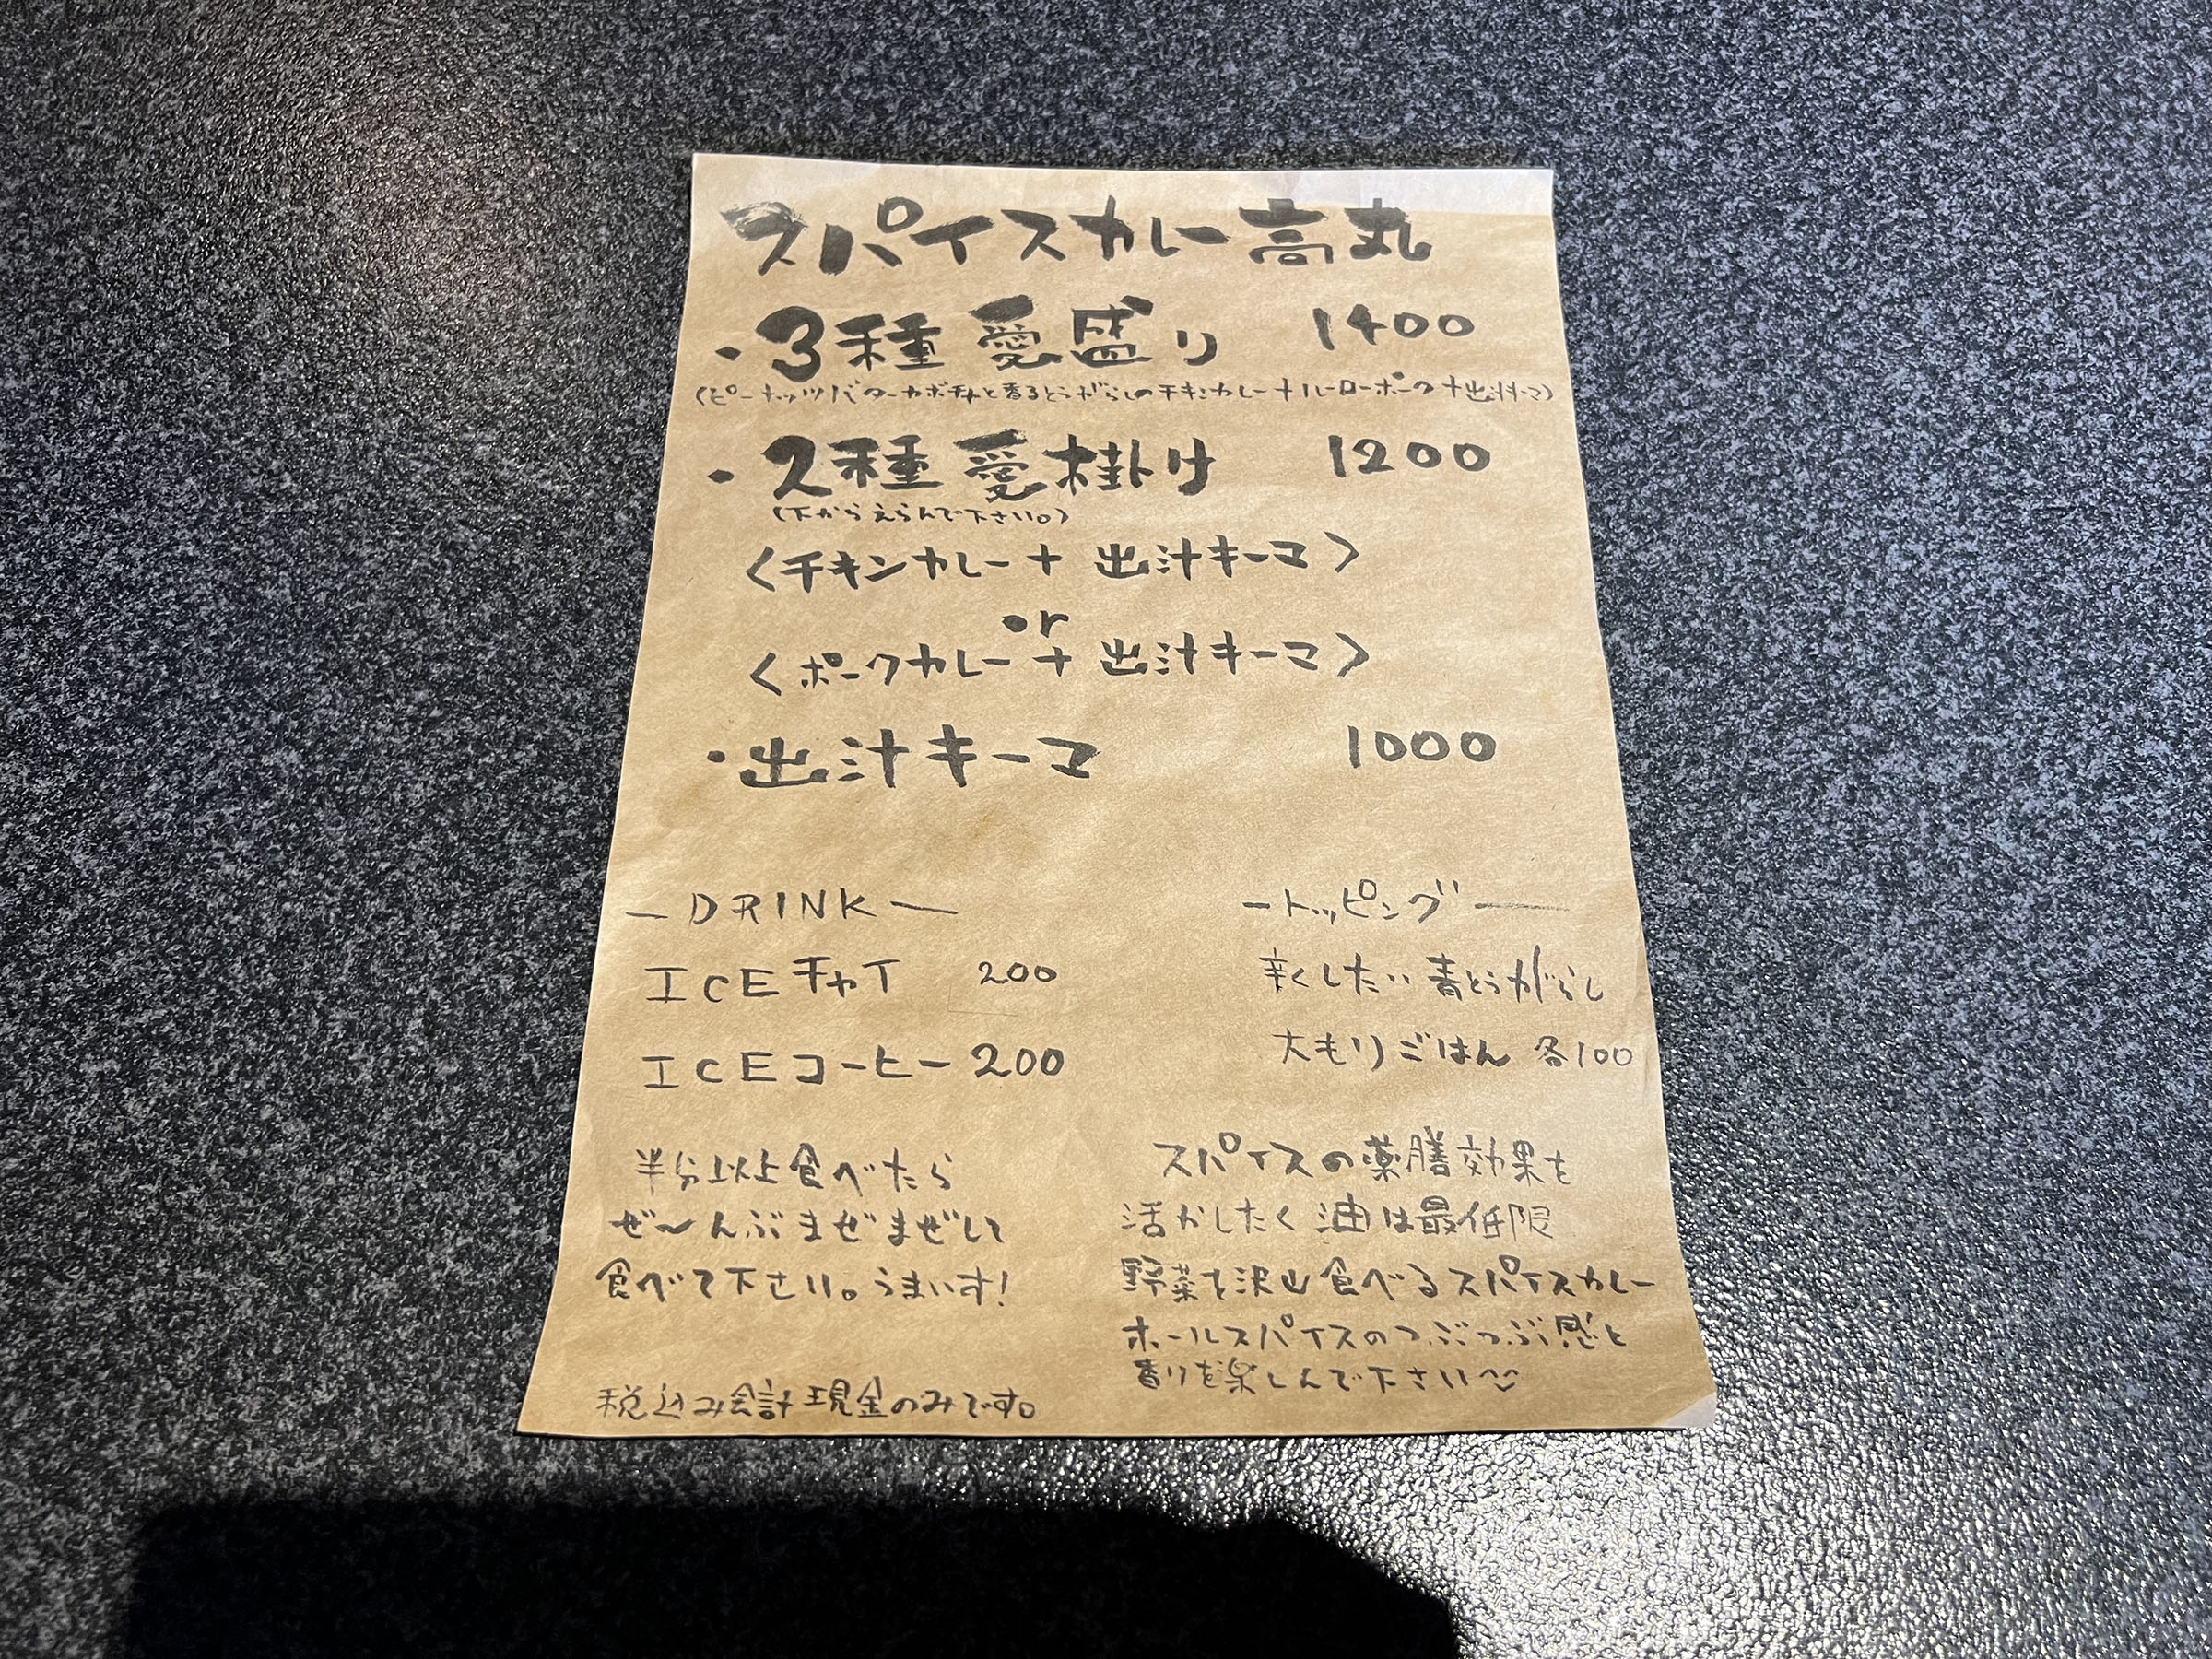 スパイスカレー高丸
・3種愛盛り 1400
(ピーナッツバターカボチャと香るとうがらしのチキンカレー+ルーローポーク+出汁キーマ)
・2種愛掛け 1200
(下からえらんで下さい。)
〈チキンカレー+出汁キーマ〉
or
〈ポークカレー+出汁キーマ〉
・出汁キーマ 1000
ーDRINKー
ICEチャイ 200
ICEコーヒー 200
ートッピングー
辛くしたい青とうがらし
大もりごはん 各100
半分以上食べたら
ぜ〜んぶまぜまぜして
食べて下さい。うまいす!
税込み会計現金のみです。
スパイスの薬膳効果を
活かしたく油は最低限
野菜を沢山食べるスパイスカレー
ホールスパイスのつぶつぶ感と
香りを楽しんで下さい^^